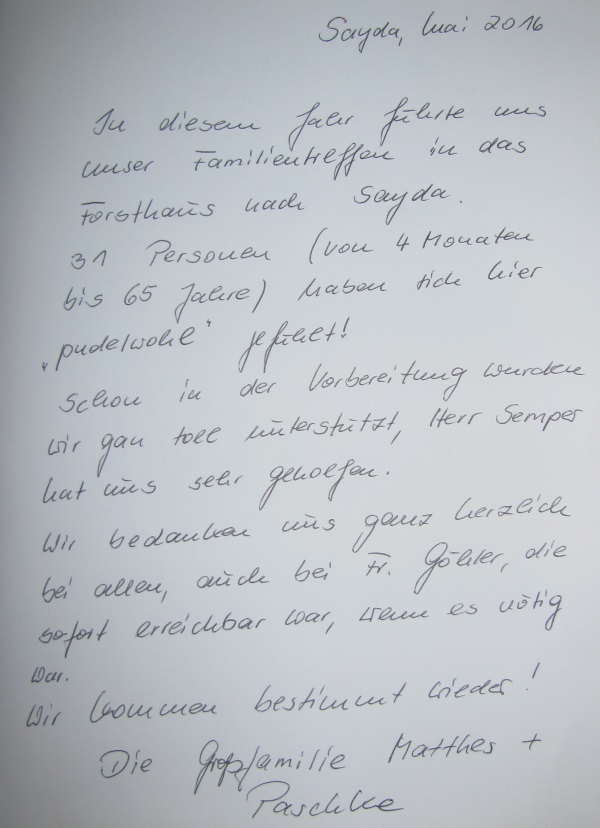 Sayda, Mai 2016
In diesem Jahr führte uns
unser Familientreffen in das
Forsthaus nach Sayda.
31 Personen (von 4 Monaten
bis 65 Jahre) haben sich hier
„pudelwohl" gefühlt!
Schon in der Vorbereitung wurden
wir gan toll unterstützt, Herr Semper
hat uns sehr geholfen.
Wir bedanken uns ganz herzlich
bei allen, auch bei Fr. Göhler, die
sofort erreichbar war, wenn es nötig
war.
Wir kommen bestimmt wieder!
Die Großfamilie Matthes +
Paschke